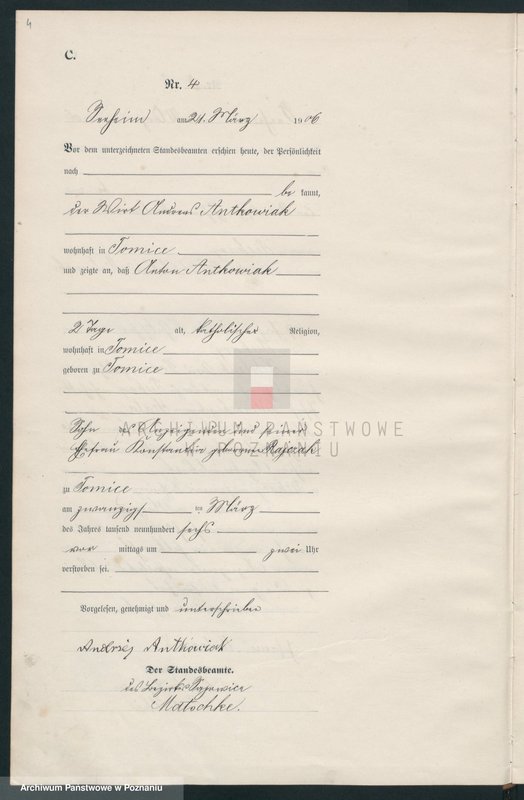 4
C.
Nr. 4
Seeheim am 21. März 1906
Vor dem unterzeichneten Standesbeamten erschien heute, der Persönlichkeit
nach
be kannt,
der Wirt Andreas Antkowiak
wohnhaft in Tomice
und zeigte an, daß Anton Antkowiak
2 Tage alt, katholischer Religion,
wohnhaft in Tomice
geboren zu Tomice
Sohn des Anzeigenden und seiner
Ehefrau Konstantia geborenen Rajczak
ARCHIWUM PAŃSTWOWE
W POZNANIU
zu Tomice
am zwanzigs ten März
des Jahres tausend neunhundert sechs
vor mittags um zwei Uhr
verstorben sei.
Vorgelesen, genehmigt und unterschrieben
Andrzej Antkowiak
Der Standesbeamte.
des Bezirks
Matschke.
Archiwum Państwowe w Poznaniu